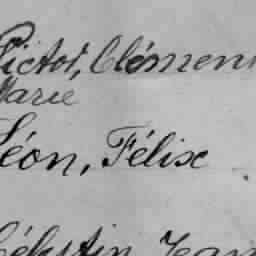 Victor, Clément
Marie
Léon, Félix
Célestin, Jean